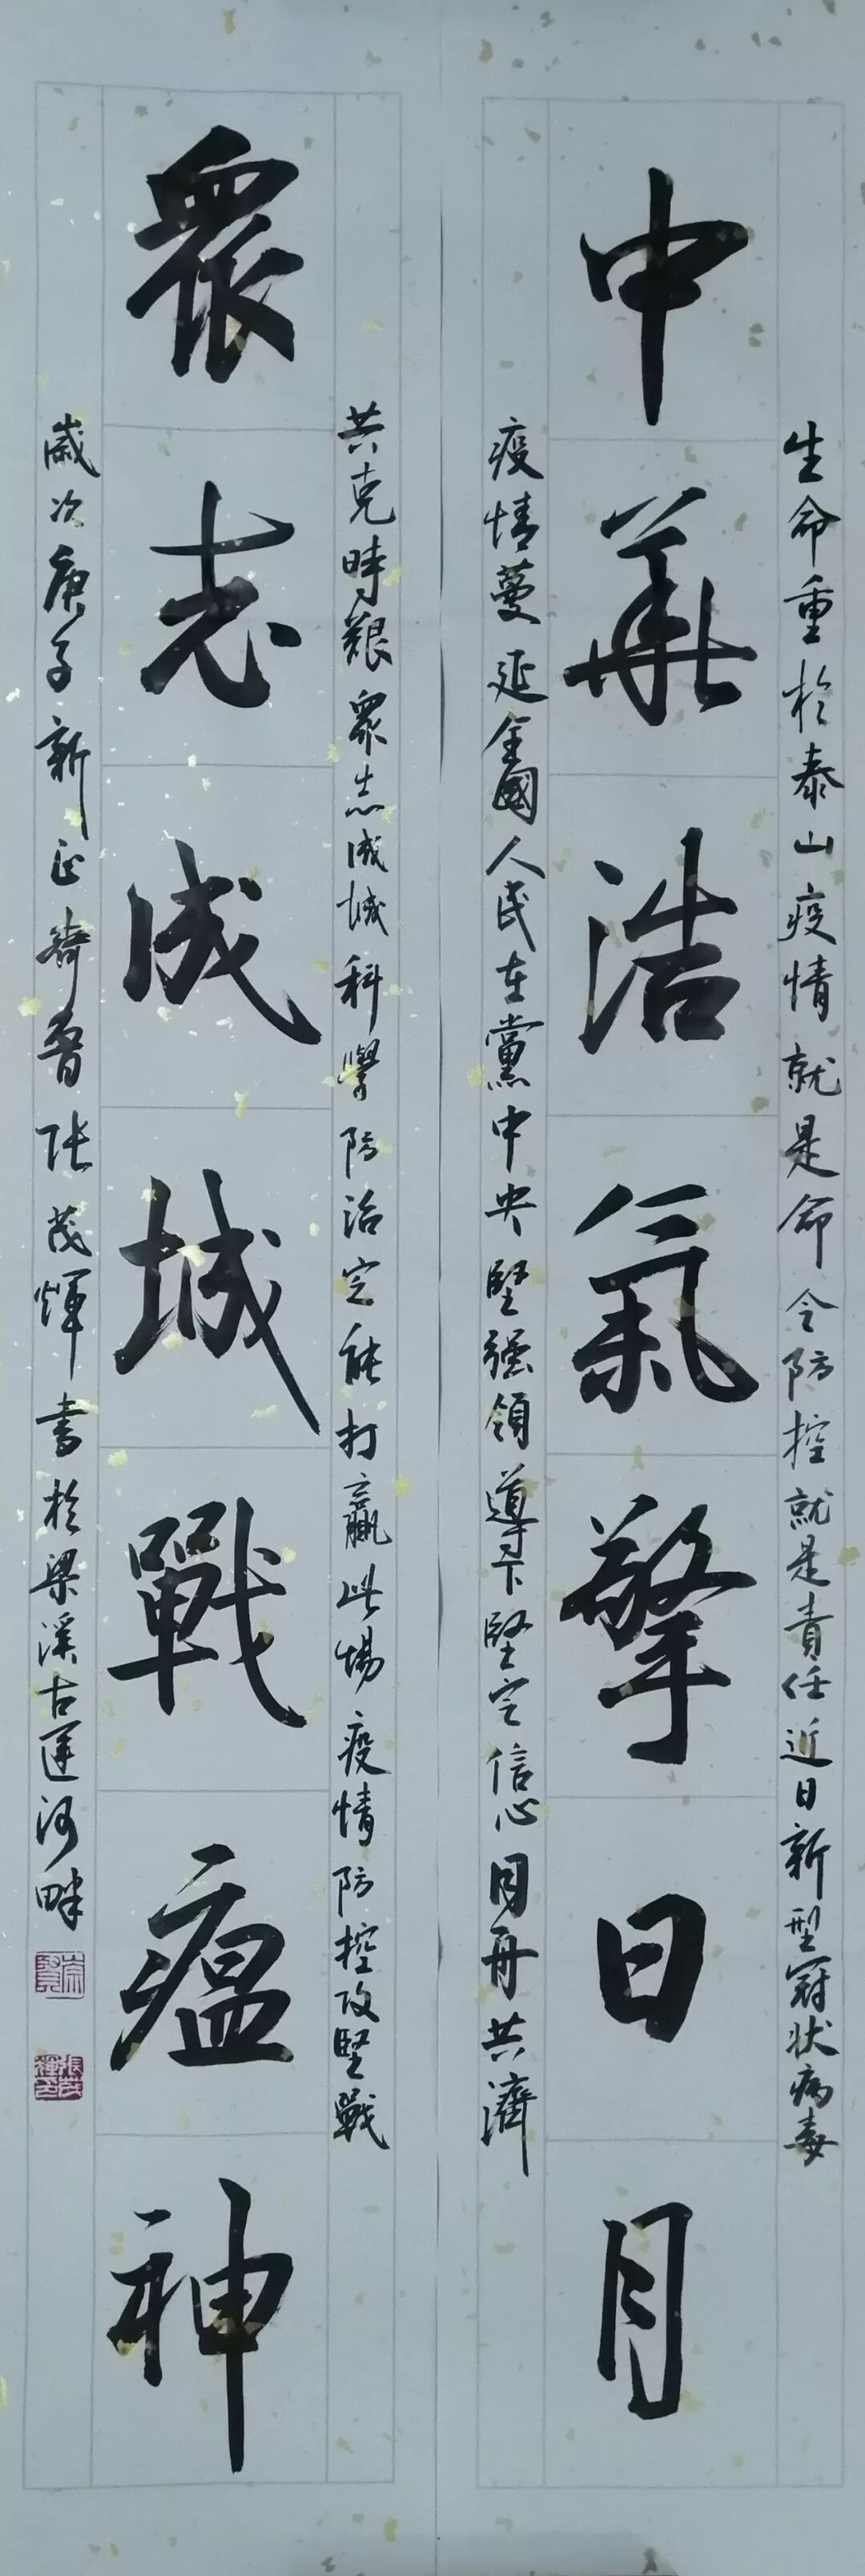 生命重於泰山疫情就是命令防控就是責任近日新型冠狀病毒
中華浩氣擎日月
疫情蔓延全國人民在黨中央堅强領導下堅定信心同舟共濟
共克時艱衆志成城科學防治定能打贏此場疫情防控攻堅戰
衆志成城戰瘟神
歲次庚子新正齊魯張茂輝書於梁溪古運河畔
張茂輝印